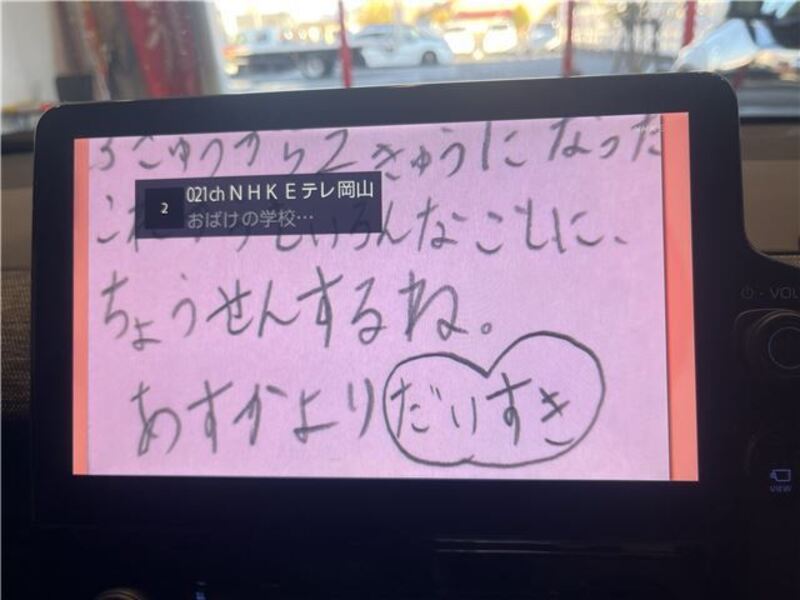 きゅうから2きゅうになった
2
021ch NHKEテレ岡山
おばけの学校…
ろんなことに、
ちょうせんするね。
あすかより だいすき
VOL
VIEW